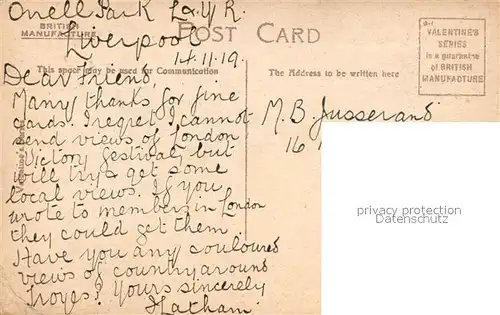 Orrell Park L.Y.R.
BRITISH
MANUFACTURE
POST CARD
Liverpool
14.11.19.
VALENTINE'S
SERIES
is a guarantee
of BRITISH
MANUFACTURE
This space may be used for Communication
The Address to be written here
Dear Friend,
Many thanks for fine
cards. I regret I cannot
send views of London
Victory festival, but
will try & get some
local views. If you
wrote to members in London
they could get them.
Have you any couloured
views of country around
Troyes? Yours sincerely
Latham
M. B. Jusserand
16
Valentine's Series
privacy protection
Datenschutz